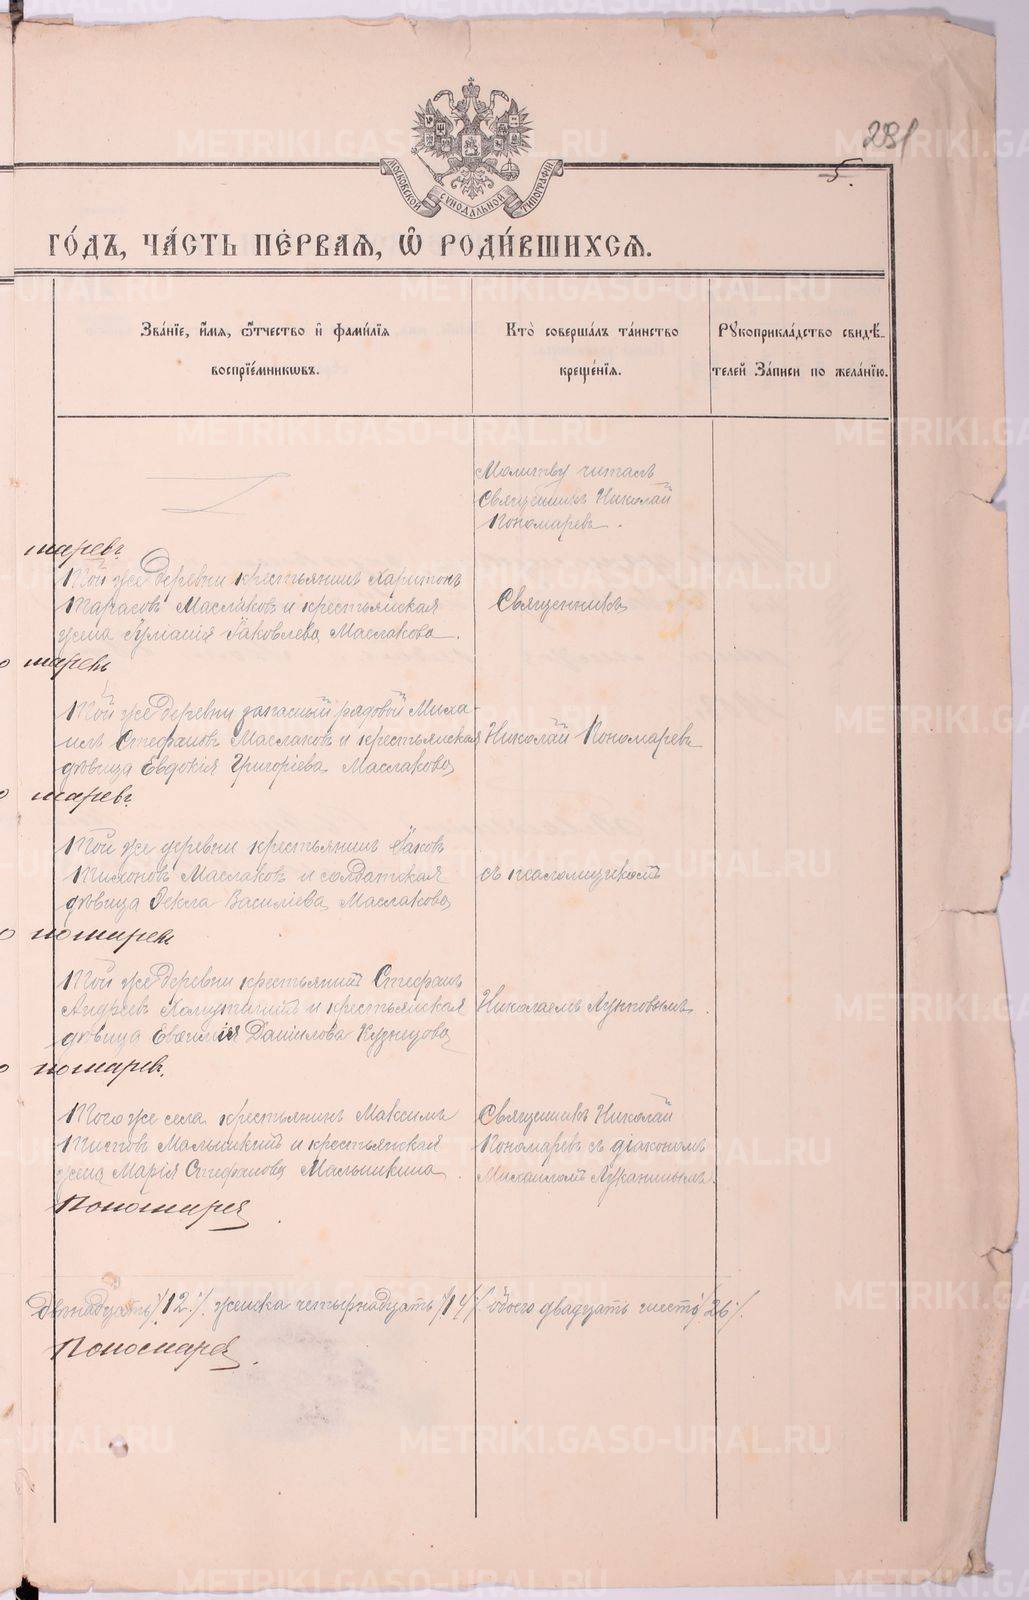 281
5.
МОСКОВСКОЙ СУНОДАЛЬНОЙ ТИПОГРАФІИ
ГО́ДЪ, ЧА́СТЬ ПЕ́РВАЯ, Ѽ РОДИ́ВШИХСѦ.
Зва́нїе, и҆́мѧ, ѻ҆́тчество и҆ фами́лїѧ
воспрїе́мникѡвъ.
Кто̀ соверша́лъ та́инство
креще́нїѧ.
Рꙋкоприкла́дство свидѣ́-
телей За́писи по жела́нїю.
Молитву читалъ
Священникъ Николай
Пономаревъ.
маревъ
Той же деревни крестьянинъ Харитонъ
Тарасовъ Маслаковъ и крестьянская
жена Іуліанія Іаковлева Маслакова.
Священникъ
о маревъ
Той же деревни запасный рядовой Миха-
илъ Стефановъ Маслаковъ и крестьянская
дѣвица Евдокія Григоріева Маслакова
Николай Пономаревъ
о маревъ
Той же деревни крестьянинъ Іаковъ
Тихоновъ Маслаковъ и солдатская
дѣвица Ѳекла Василіева Маслакова
съ псаломщикомъ
о номаревъ
Той же деревни крестьянинъ Стефанъ
Андреевъ и крестьянская
дѣвица Евѳимія Даніилова Кузнецова
Николаемъ
о номаревъ.
Того же села крестьянинъ Максимъ
Титовъ Малышкинъ и крестьянская
жена Марія Стефанова Малышкина
Священникъ Николай
Пономаревъ съ діакономъ
Михаиломъ Луканинымъ.
Пономарев
Двѣнадцать /12./. женска четырнадцать /14/ обоего двадцать шесть /26./.
Пономарев.
METRIKI.GASO-URAL.RU